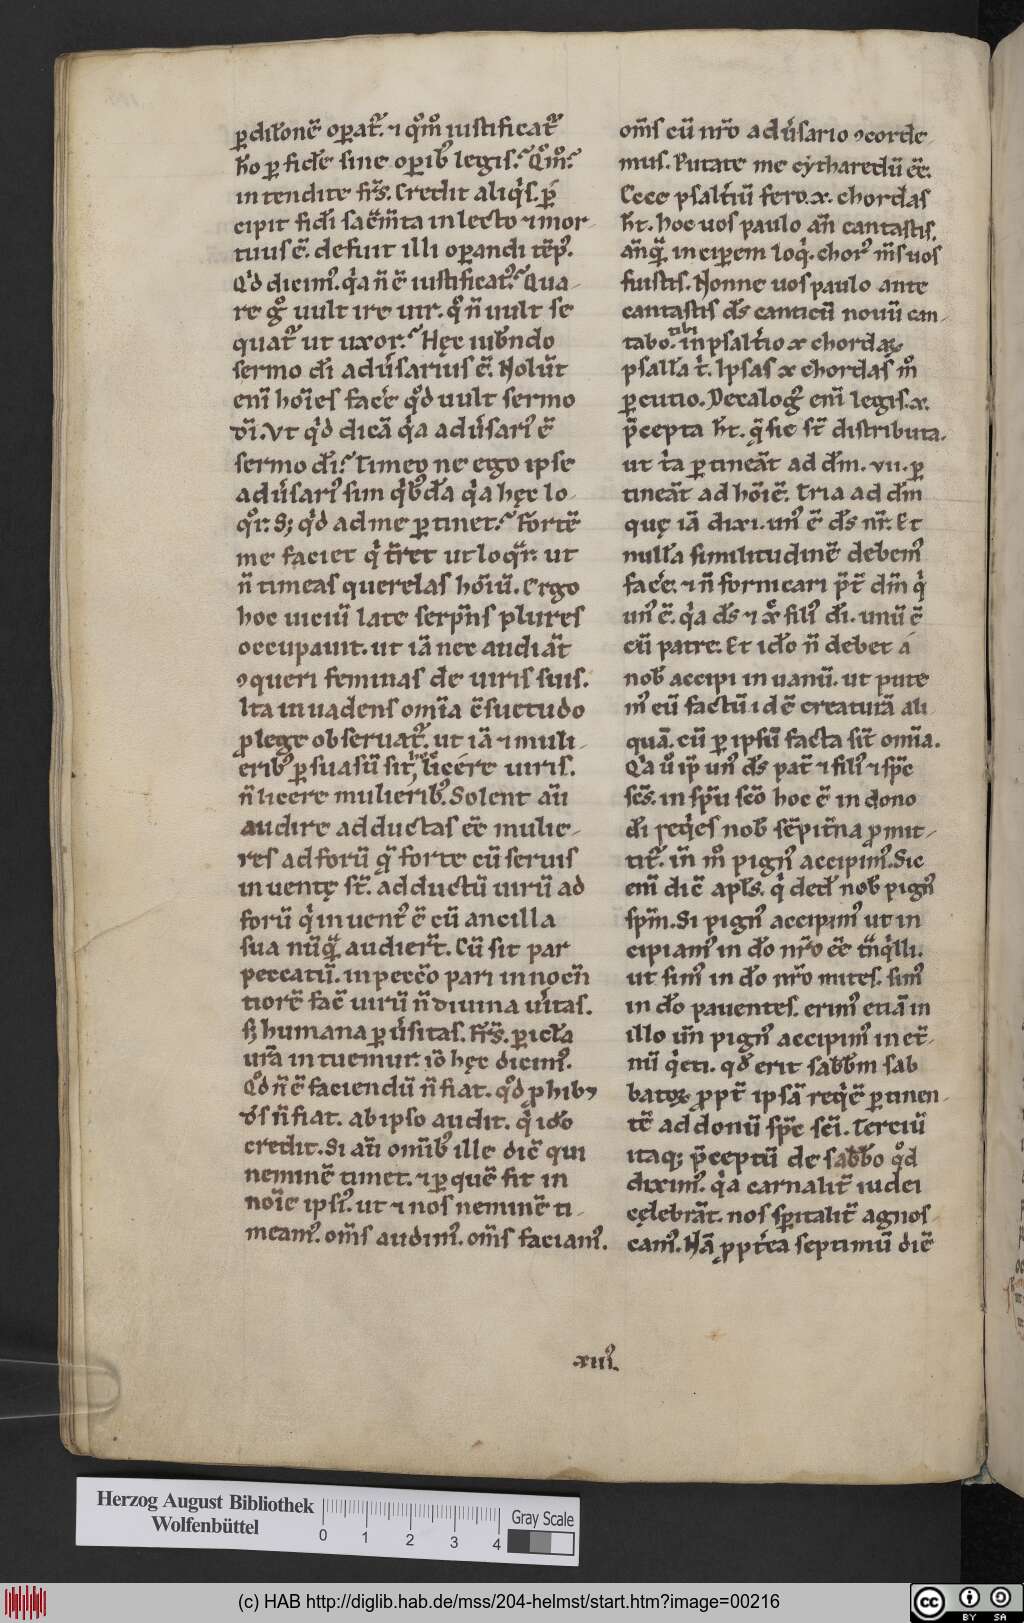 ꝑdit̃onẽ oꝑat᷑. ⁊ qͦmͦ iustificat᷑
h̃o ꝑ fidẽ sine oꝑib; legis? Qͦmͦ?
intendite fr̃s. Credit aliqͥs. ꝑ
cipit fidi sac̃m̃ta in lecto ⁊ mor-
tuus ẽ. defuit illi oꝑandi tẽp᷒.
Qͥd dicim᷒. qͥa ñ ẽ iustificat᷒? Qua-
re gͦ uult ire uir. qͦ ñ uult se
quat᷑ ut uxor? Hęc iub̃ndo
sermo dĩ adũsarius ẽ. Nolũt
enĩ hoĩes facẽ qͦd uult sermo
dĩ. Vt qͥd dicã qͥa adũsari᷒ ẽ
sermo dĩ? Timeo ne ego ipse
adũsari᷒ sim qͥb;dã qͥa hęc lo-
qͦr. S; qͥd ad me ꝑtinet? Fortẽ
me faciet qͥ t̃ret ut loqᷓr. ut
ñ timeas querelas hoĩũ. Ergo
hoc uiciũ late serp̃ns plures
occupauit. ut iã nec audiãt
ꝯqueri feminas de uiris suis.
Ita inuadens om̃ia ꝯ̃suetudo
ꝓ lege obseruat᷑. ut iã ⁊ muli-
erib; ꝑsuasũ sit, licere uiris.
ñ licere mulierib;. Solent aũ
audire adductas eẽ mulie-
res ad forũ qᷓ forte cũ seruis
inuentę st̃. adductũ uirũ ad
forũ qͥ inuent᷒ ẽ cũ ancilla
sua nũqᷓ audier̃t. Cũ sit par
peccatũ. in pecc̃o pari innocẽn
tiorẽ facẽ uirũ ñ diuina ũitas.
ꞩ humana ꝑũsitas. Fr̃s. ꝑicl̃a
ur̃a intuemur. iõ hęc dicim᷒.
Qͦd ñ ẽ faciendũ ñ fiat. qͦd ꝓhib;
d̃s ñ fiat. ab ipso audit. qͥ ido
credit. Si aũ omĩb; ille dicẽ qui
neminẽ timet. ⁊ ꝑ quẽ fit in
noĩe ipsi᷒. ut ⁊ nos neminẽ ti-
meam᷒. om̃s audim᷒. om̃s faciam᷒.
om̃s cũ nr̃o adũsario ꝯcorde
mus. Putate me cytharedũ eẽ.
Ecce psaltiũ fero. x. chordas
h̃t. hoc uos paulo añ cantastis.
añqᷓ inciꝑem loqͥ. chor᷒ m̃s uos
fuistis. Nonne uos paulo ante
cantastis d̃s canticũ nouũ can-
tabo tibi in psaltio x chordaꝝ
psalla t̃. Ipsas x chordas mͦ
ꝑcutio. Decalog᷒ enĩ legis. x.
p̃cepta h̃t. qͥ sic st̃ distributa.
ut tͥa ꝑtineãt ad dm̃. vii. ꝑ
tineãt ad hoĩẽ. Tria ad dm̃
quę iã dixi. un᷒ ẽ d̃s nr̃. Et
nullã similitudinẽ debem᷒
facẽ. ⁊ ñ fornicari p̃t̃ dm̃ qͥ
un᷒ ẽ. qͥa d̃s ⁊ xp̃ fili᷒ dĩ. unũ ẽ
cũ patre. Et ido ñ debet á
nob̃ accipi in uanũ. ut pute
m᷒ eũ factũ id ẽ creaturã ali
quã. cũ ꝑ ipsũ facta sit om̃ia.
Qͥa ũ ip̃ un᷒ d̃s pat̃ ⁊ fili᷒ ⁊ sp̃c
sc̃s. in sp̃u sc̃o hoc ẽ in dono
dĩ reqͥes nob̃ sẽpit̃na ꝓmit-
tit᷑. iñ mͦ pign᷒ accipim᷒. Sic
enĩ dic̃ apl̃s. qͥ dedˀ nob̃ pign᷒
sp̃m. Si pign᷒ accipim᷒ ut in
cipiam᷒ in do nr̃o eẽ tnᷓqͥlli.
ut sim᷒ in do nr̃o mites. sim᷒
in do pauentes. erim᷒ etiã in
illo uñ pign᷒ accipim᷒ in et̃-
nũ qͥeti. qd̃ erit sabb̃m sab
batoꝝ ꝓpt̃ ipsã reqͥẽ ꝑtinen-
tẽ ad donũ sp̃c sc̃i. Terciũ
itaq; p̃ceptũ de sabb̃o qͦd
dixim᷒. qͥa carnalit̃ iudei
cęlebrãt. nos sp̃italit̃ agnos-
cam᷒. Nã ꝓptͥea septimũ diẽ
xiii᷒.
Herzog August Bibliothek
Wolfenbüttel
0 1 2 3 4
Gray Scale
(c) HAB http://diglib.hab.de/mss/204-helmst/start.htm?image=00216
cc BY SA